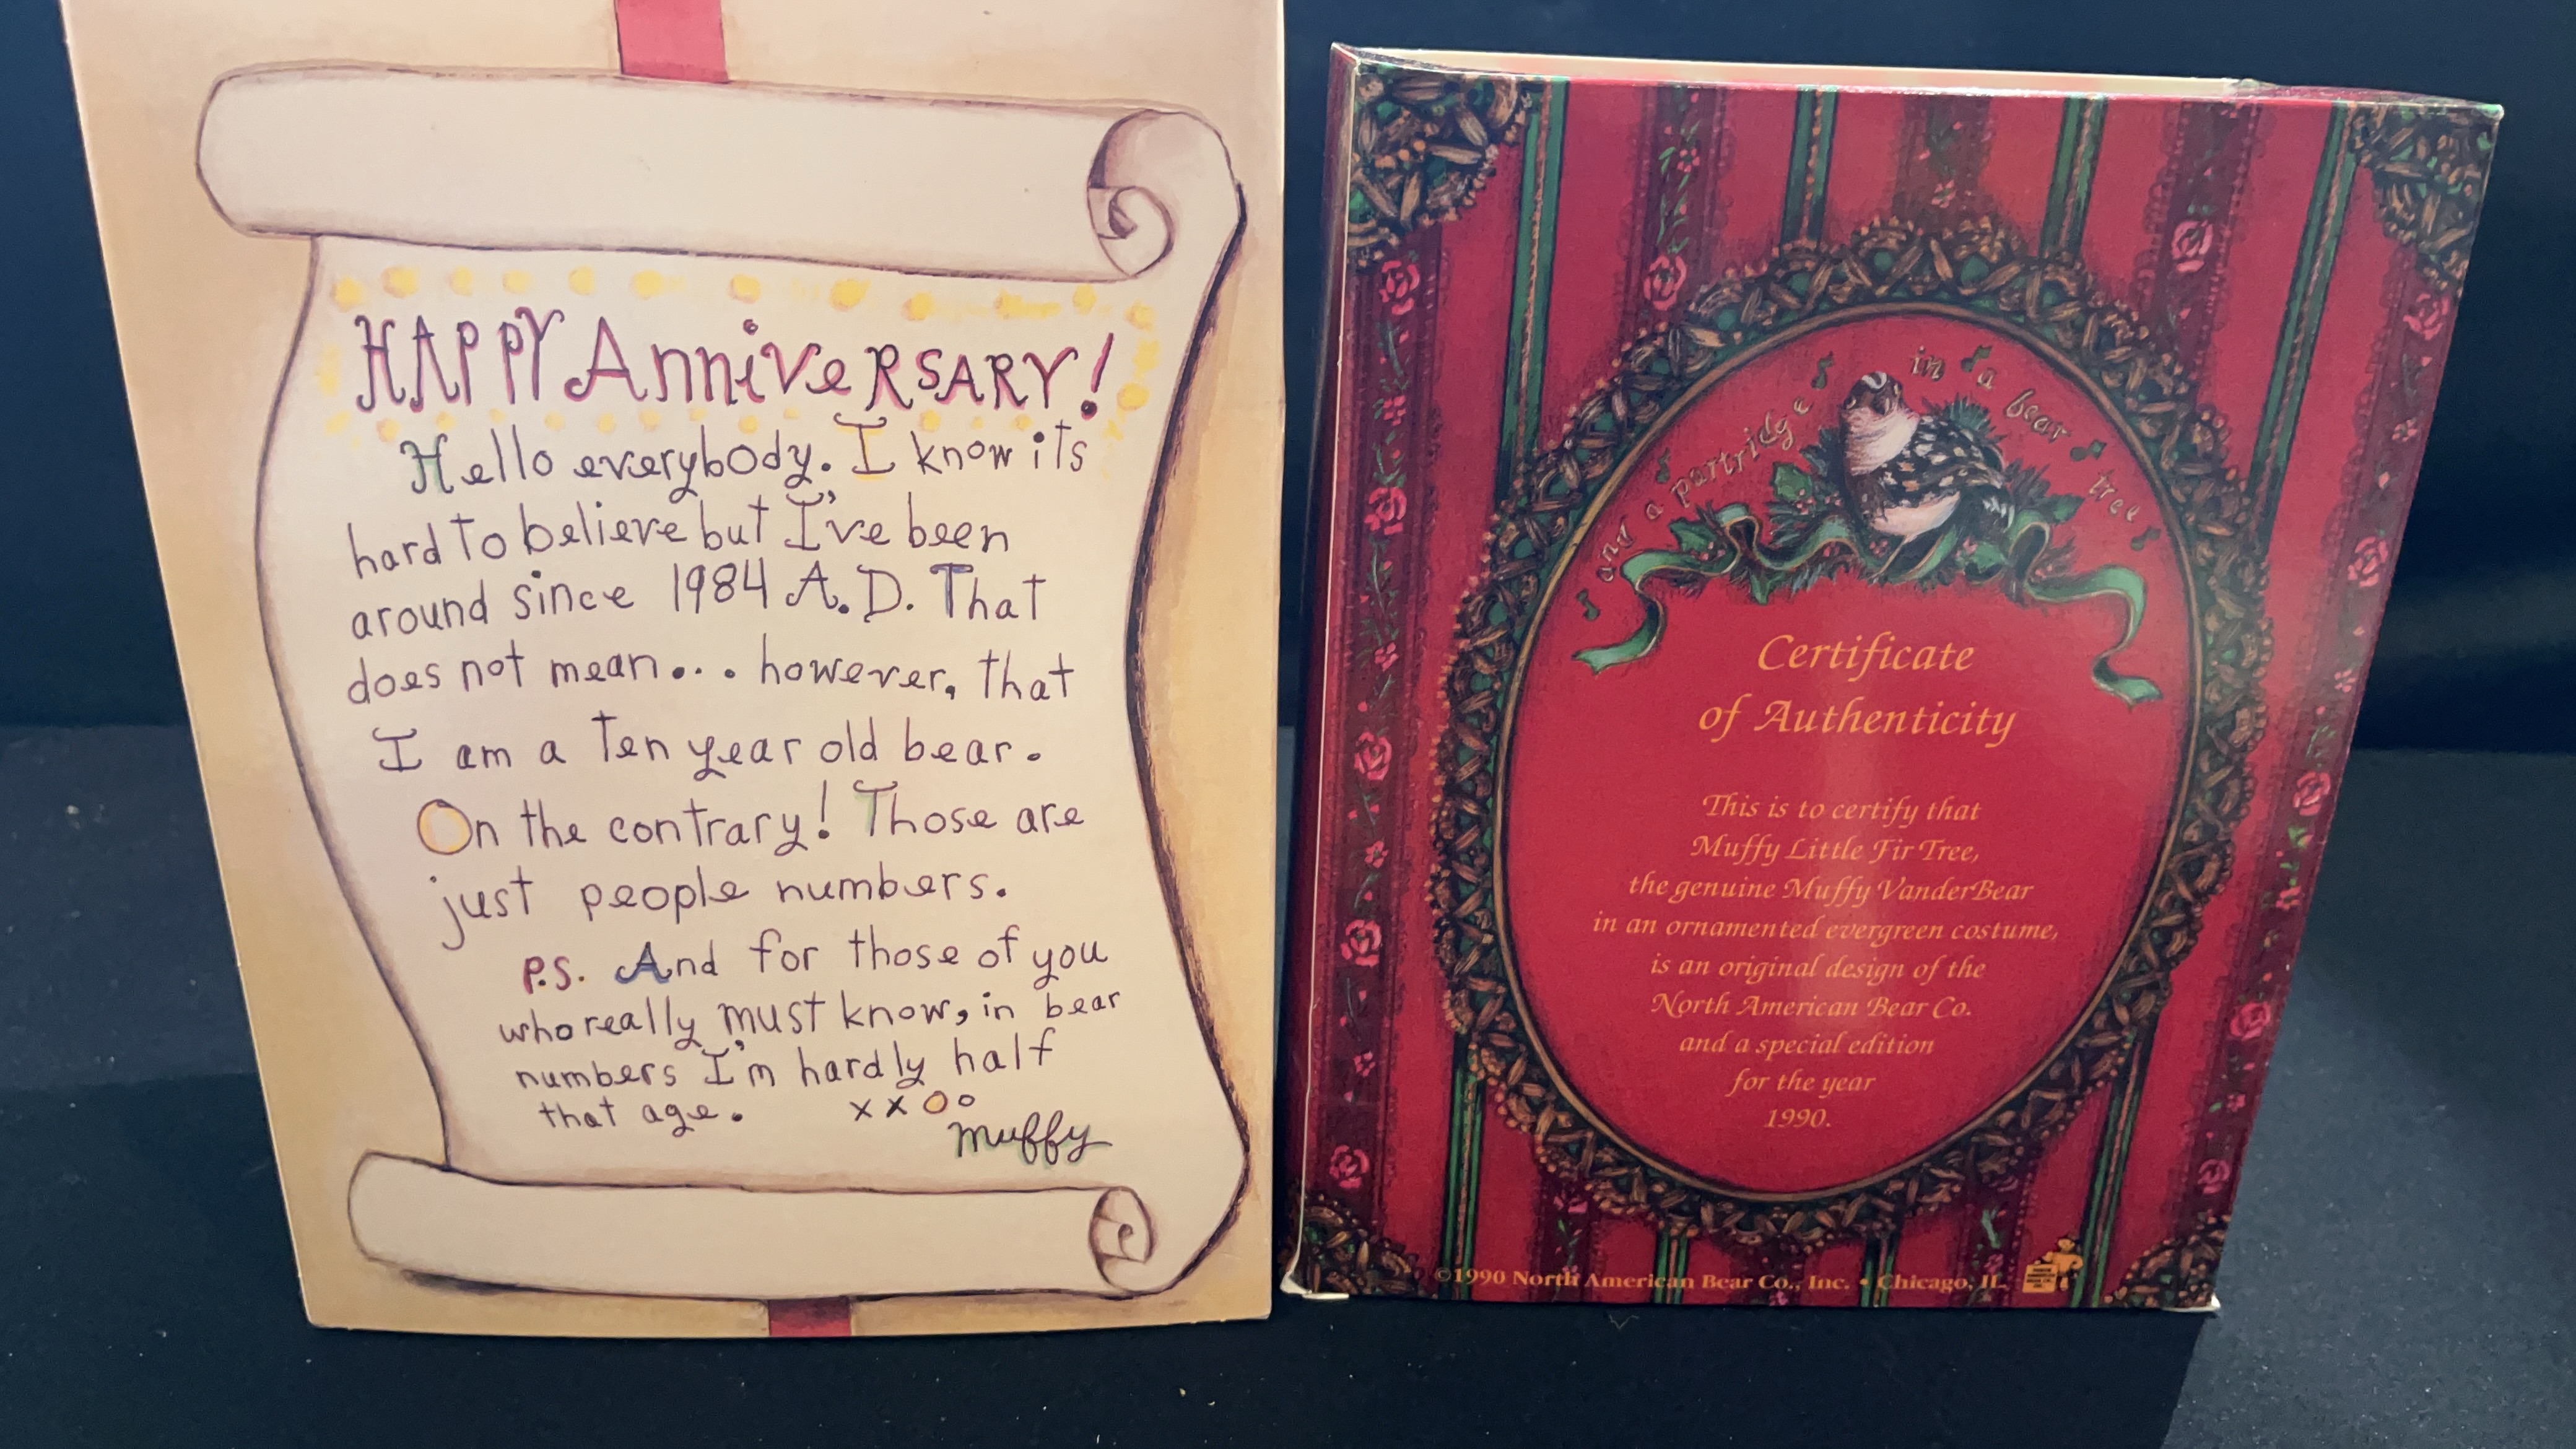 HAPPY AnniveRSARY!
Hello everybody. I know its
hard To believe but I've been
around since 1984 A.D. That
does not mean... however, that
I am a Ten year old bear.
On the contrary! Those are
just people numbers.
P.S. And for those of you
who really must know, in bear
numbers I'm hardly half
that age. x x O o
Muffy
and a partridge in a bear tree
Certificate
of Authenticity
This is to certify that
Muffy Little Fir Tree,
the genuine Muffy VanderBear
in an ornamented evergreen costume,
is an original design of the
North American Bear Co.
and a special edition
for the year
1990.
©1990 North American Bear Co., Inc. • Chicago, IL